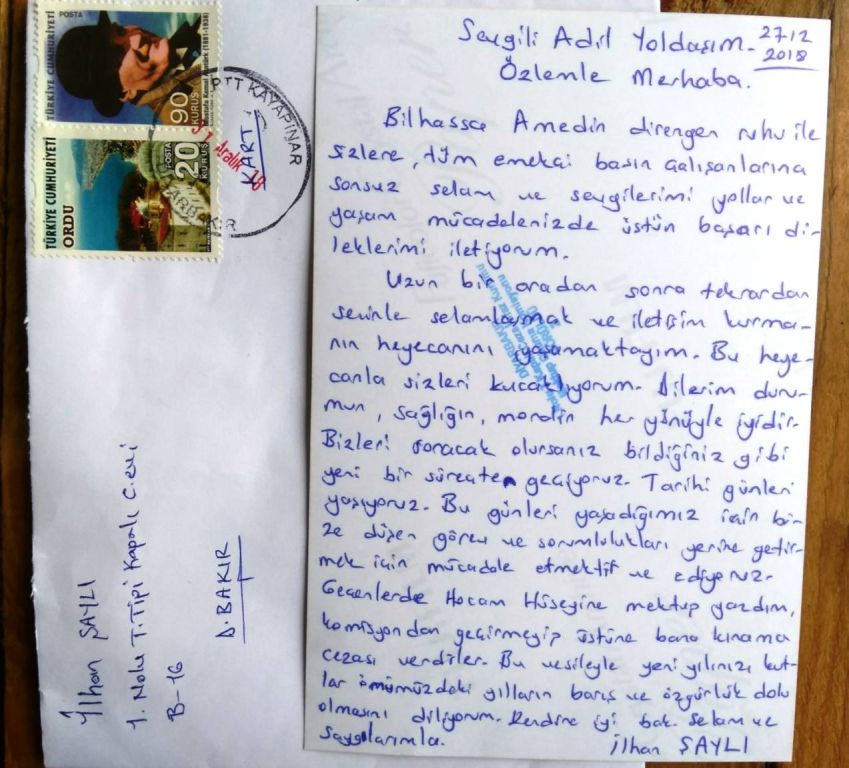 TÜRKİYE CUMHURİYETİ
POSTA
90
KURUŞ
TÜRKİYE CUMHURİYETİ
ORDU
POSTA
20
KURUŞ
PTT KAYAPINAR
Aralık 18
KART
İlhan ŞAYLI
1. Nolu T. Tipi Kapalı C.evi
B-16
D.BAKIR
27.12
2018
Sevgili Adil Yoldaşım.
Özlemle Merhaba.
Bilhassa Amedin direngen ruhu ile
sizlere, tüm emekçi basın çalışanlarına
sonsuz selam ve sevgilerimi yollar ve
yaşam mücadelenizde üstün başarı di-
leklerimi iletiyorum.
Uzun bir aradan sonra tekrardan
seninle selamlaşmak ve iletişim kurma-
nın heyecanını yaşamaktayım. Bu heye-
canla sizleri kucaklıyorum. Dilerim duru-
mun, sağlığın, moralin her yönüyle iyidir.
Bizleri soracak olursanız bildiğiniz gibi
yeni bir süreçten geçiyoruz. Tarihi günleri
yaşıyoruz. Bu günleri yaşadığımız için bi-
ze düşen görev ve sorumlulukları yerine getir-
mek için mücadele etmektir ve ediyoruz.
Geçenlerde Hocam Hüseyine mektup yazdım,
komisyondan geçirmeyip üstüne bana kınama
cezası verdiler. Bu vesileyle yeni yılınızı kut-
lar önümüzdeki yılların barış ve özgürlük dolu
olmasını diliyorum. Kendine iyi bak. Selam ve
Saygılarımla.
İlhan ŞAYLI